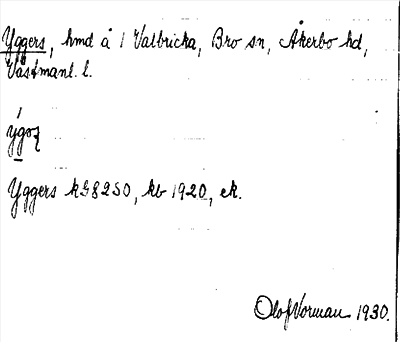 Yggers, hmd å 1 Valbricka, Bro sn, Åkerbo hd,
Västmanl. l.
Yggers kG8250, kb 1920, ek.
Olof Vorman 1930.